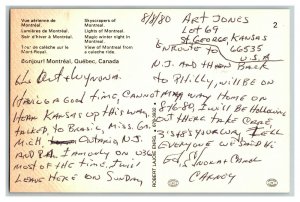 Vue aérienne de
Montréal.
Lumières de Montréal.
Soir d'hiver à Montréal.
Tour de calèche sur le
Mont-Royal.
Skyscrapers of
Montreal.
Lights of Montreal.
Magic winter night in
Montreal.
View of Montreal from
a caleche ride.
Bonjour! Montréal, Québec, Canada
8/8/80
Art Jones
Lot 69
St George Kansas
66535
U.S.A
2
Hi Art & Wynona.
Having a good time, cannot
hear Kansas up this way,
talked, to Brasil, Miss. Ga.
Mich. Ontario N.J.
and P.A. I am only on
most of the time. I will
leave here on Sunday
enroute to
N.J. and then back
to Philly, will be on
my way home on
8-16-80, I will be hollering
out there take care,
3's & 8's your way. Tell
everyone we said Hi
Ed
Carney